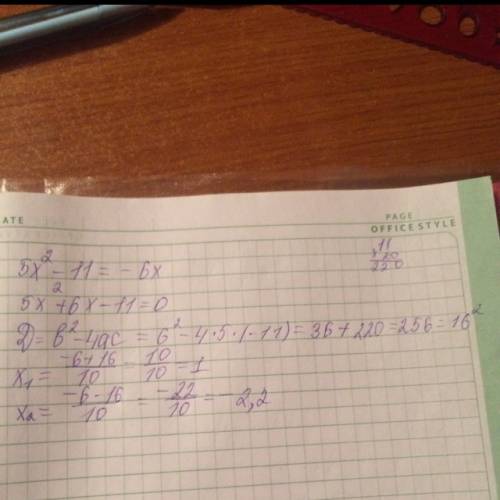 ATE
PAGE
OFFICE STYLE
11
×20
220
5x² - 11 = - 6x
5x² + 6x - 11 = 0
D = b² - 4ac = 6² - 4·5·(-11) = 36 + 220 = 256 = 16²
x₁ = (-6+16)/10 = 10/10 = 1
x₂ = (-6-16)/10 = -22/10 = - 2,2